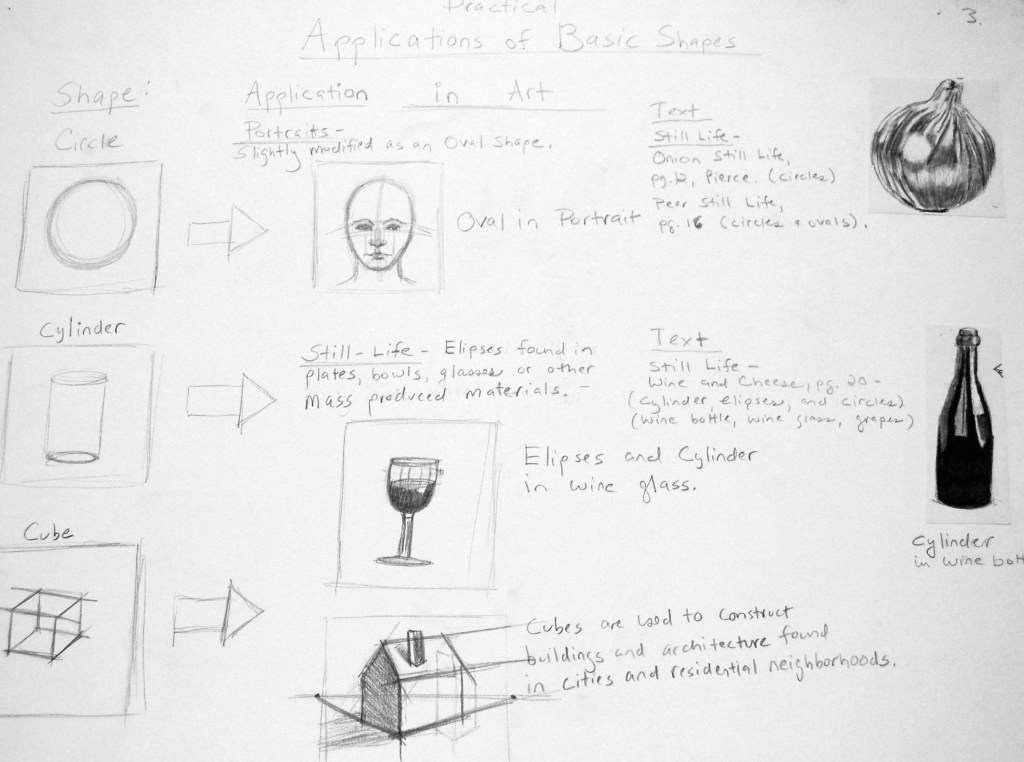 Practical
Applications of Basic Shapes
3.
Shape:
Application in Art
Circle
Portraits-
Slightly modified as an Oval shape.
Oval in Portrait
Text
Still Life-
Onion Still Life,
pg.12, Pierce. (circles)
Peer Still Life,
pg. 16 (circles + ovals).
Cylinder
Still-Life - Elipses found in
plates, bowls, glasses or other
Mass produced materials.
Elipses and Cylinder
in wine glass.
Text
Still Life -
Wine and Cheese, pg. 20-
(Cylinder, elipses, and circles)
(wine bottle, wine glass, grapes)
Cylinder
in wine bott
Cube
Cubes are used to construct
buildings and architecture found
in cities and residential neighborhoods.